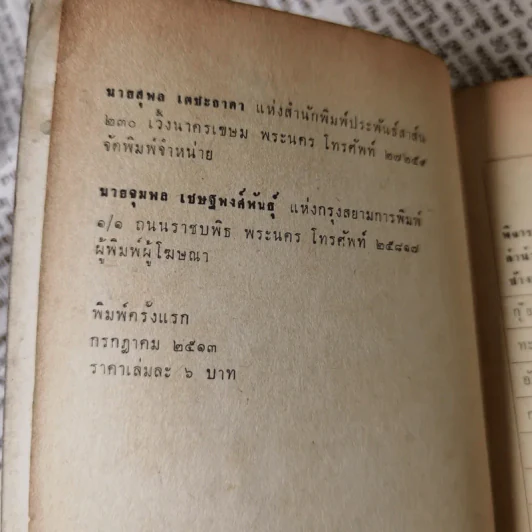 นายสุพล เตชะธาดา แห่งสำนักพิมพ์ประพันธ์สาส์น
๒๓๐ เวิ้งนาครเขษม พระนคร โทรศัพท์ ๒๗๒๕๑
จัดพิมพ์จำหน่าย
นายจุมพล เชษฐพงศ์พันธุ์ แห่งกรุงสยามการพิมพ์
๑/๑ ถนนราชบพิธ พระนคร โทรศัพท์ ๒๕๘๑๗
ผู้พิมพ์ผู้โฆษณา
พิมพ์ครั้งแรก
กรกฎาคม ๒๕๑๓
ราคาเล่มละ ๖ บาท